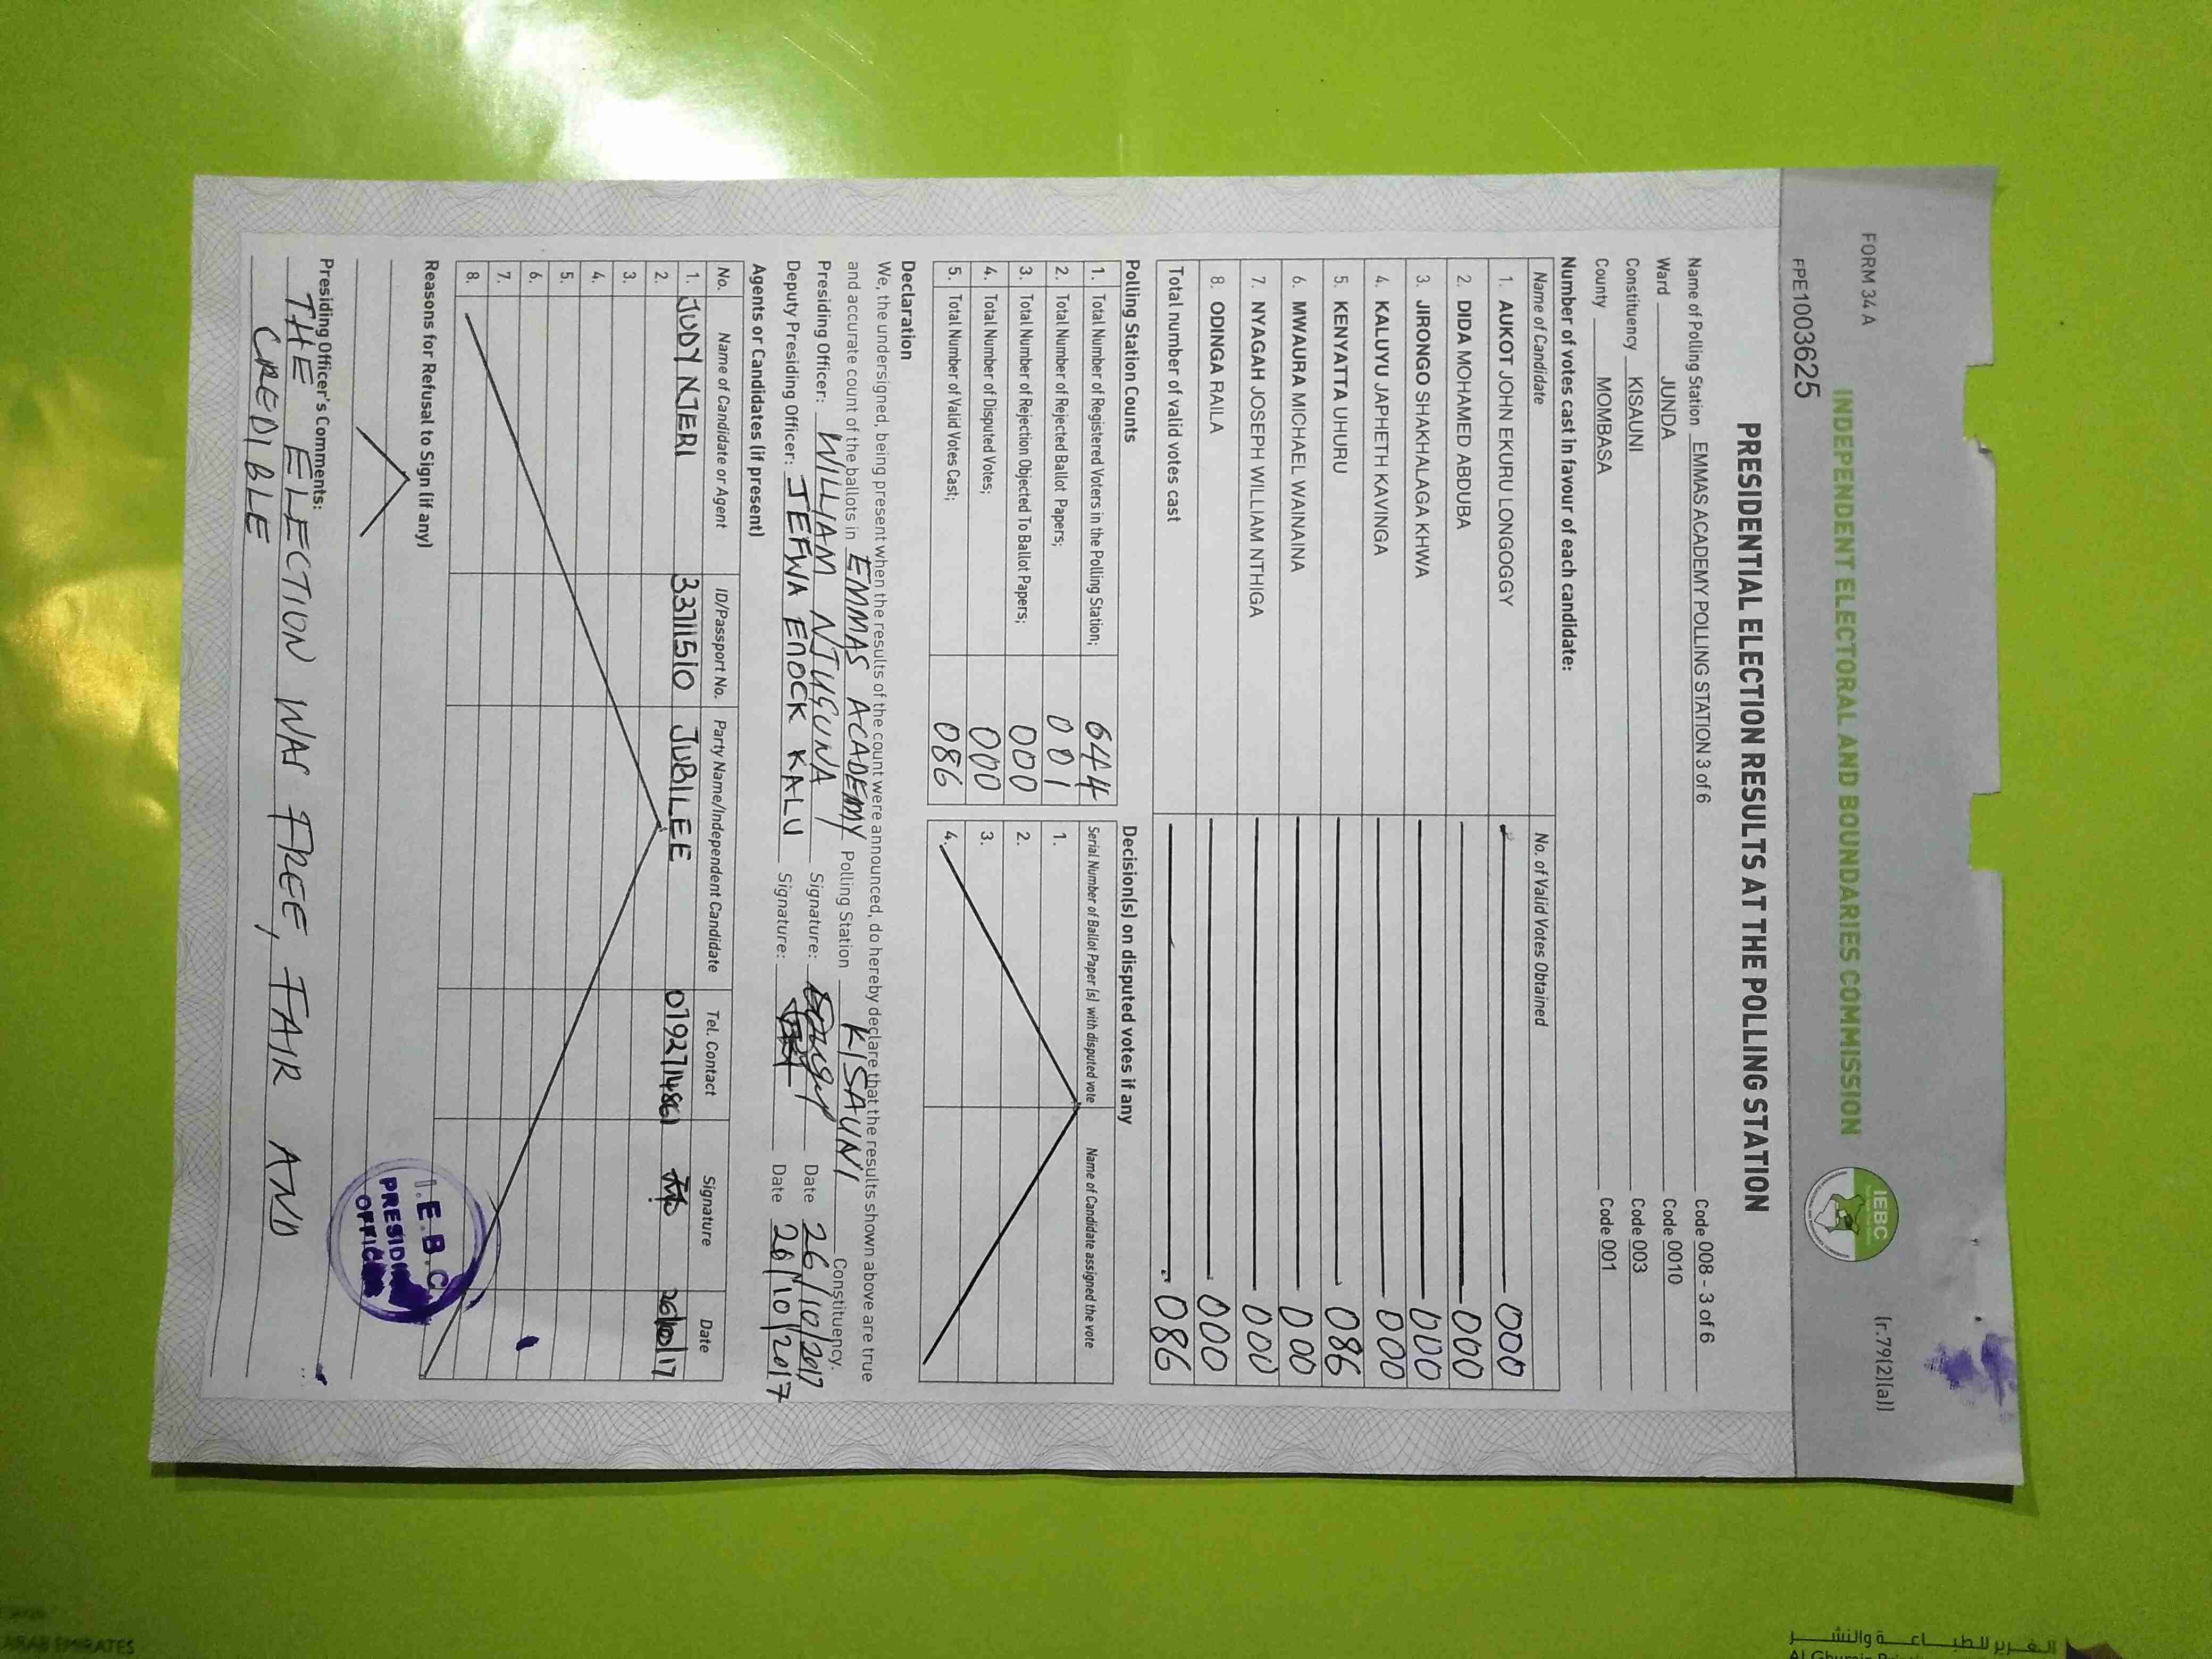 FORM 34 A
INDEPENDENT ELECTORAL AND BOUNDARIES COMMISSION
IEBC
(r.79(2)(a))
FPE1003625
PRESIDENTIAL ELECTION RESULTS AT THE POLLING STATION
Name of Polling Station EMMAS ACADEMY POLLING STATION 3 of 6 Code 008 - 3 of 6
Ward JUNDA Code 0010
Constituency KISAUNI Code 003
County MOMBASA Code 001
Number of votes cast in favour of each candidate:
Name of Candidate No. of Valid Votes Obtained
1. AUKOT JOHN EKURU LONGOGGY 000
2. DIDA MOHAMED ABDUBA 000
3. JIRONGO SHAKHALAGA KHWA 000
4. KALUYU JAPHETH KAVINGA 000
5. KENYATTA UHURU 086
6. MWAURA MICHAEL WAINAINA 000
7. NYAGAH JOSEPH WILLIAM NTHIGA 000
8. ODINGA RAILA 000
Total number of valid votes cast 086
Polling Station Counts
1. Total Number of Registered Voters in the Polling Station; 644
2. Total Number of Rejected Ballot Papers; 001
3. Total Number of Rejection Objected To Ballot Papers; 000
4. Total Number of Disputed Votes; 000
5. Total Number of Valid Votes Cast; 086
Decision(s) on disputed votes if any
Serial Number of Ballot Paper (s) with disputed vote Name of Candidate assigned the vote
1.
2.
3.
4.
Declaration
We, the undersigned, being present when the results of the count were announced, do hereby declare that the results shown above are true
and accurate count of the ballots in EMMAS ACADEMY Polling Station KISAUNI Constituency.
Presiding Officer: WILLIAM NJUGUNA Signature: Date 26/10/2017
Deputy Presiding Officer: JEFWA ENOCK KALU Signature: Date 26/10/2017
Agents or Candidates (if present)
No. Name of Candidate or Agent ID/Passport No. Party Name/Independent Candidate Tel. Contact Signature Date
1. JUDY NJERI 33711510 JUBILEE 26/10/17
2.
3.
4.
5.
6.
7.
8.
Reasons for Refusal to Sign (if any)
I.E.B.C
PRESIDING
OFFICER
Presiding Officer's Comments:
THE ELECTION WAS FREE, FAIR AND
CREDIBLE
ARAB EMIRATES